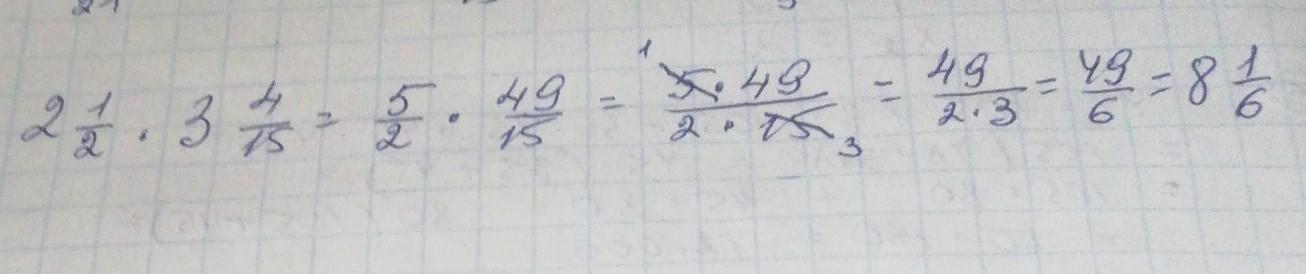 2 1/2 · 3 4/15 = 5/2 · 49/15 = 1 5·49/2·15 3 = 49/2·3 = 49/6 = 8 1/6